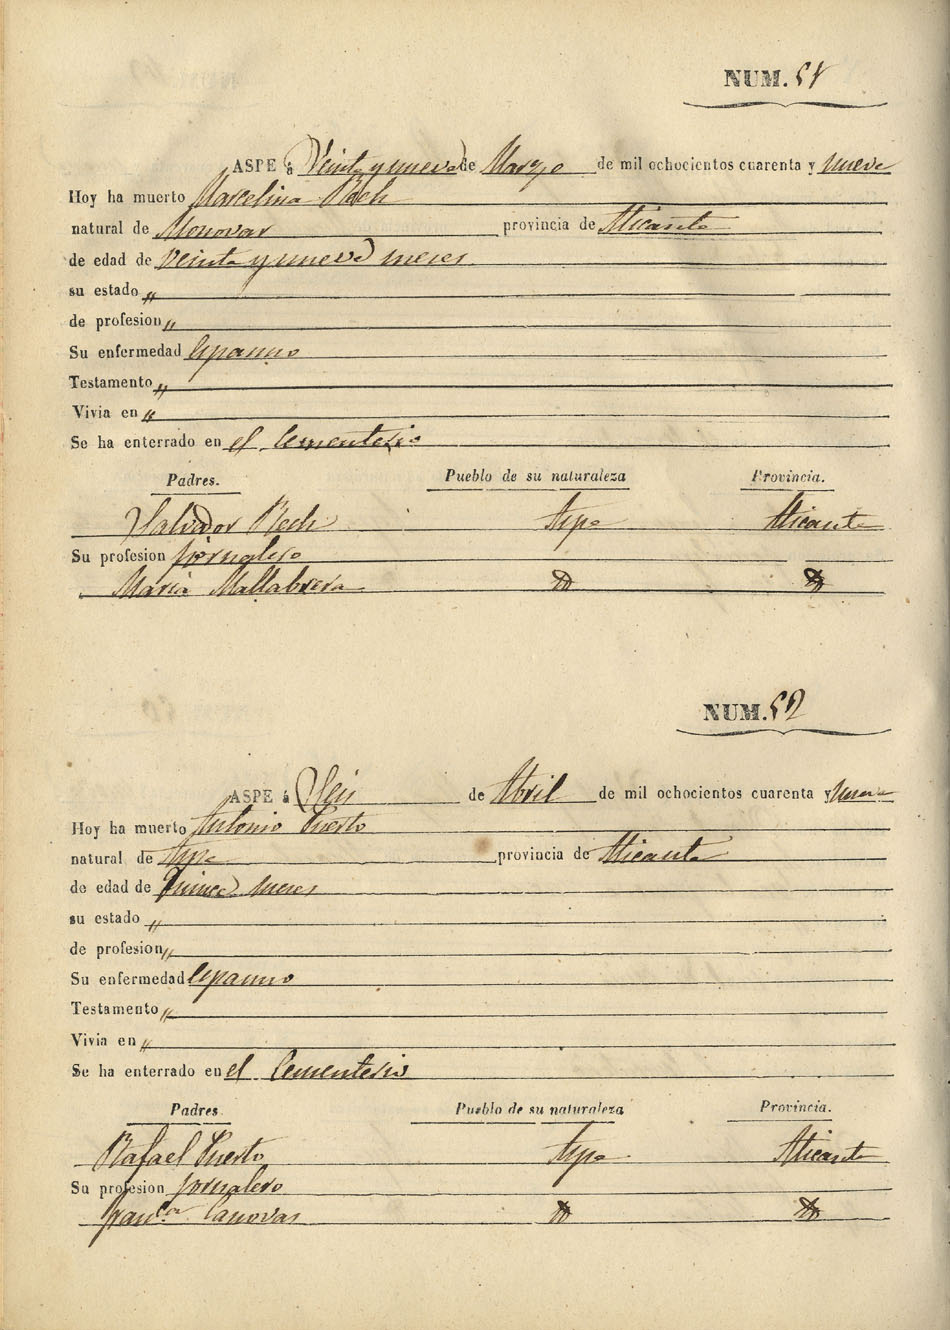 NUM. 51
ASPE á Veinte y nueve de Marzo de mil ochocientos cuarenta y nueve
Hoy ha muerto Marcelina Bech
natural de Monovar provincia de Alicante
de edad de veinte y nueve meses
su estado "
de profesion "
Su enfermedad Espasmo
Testamento "
Vivia en "
Se ha enterrado en el Cementerio
Padres. Pueblo de su naturaleza Provincia.
Salvador Bech Aspe Alicante
Su profesion jornalero
Maria Mallabrera
NUM. 52
ASPE á Seis de Abril de mil ochocientos cuarenta y nueve
Hoy ha muerto Antonio Puerto
natural de Aspe provincia de Alicante
de edad de Quince meses
su estado "
de profesion "
Su enfermedad Espasmo
Testamento "
Vivia en "
Se ha enterrado en el Cementerio
Padres. Pueblo de su naturaleza Provincia.
Rafael Puerto Aspe Alicante
Su profesion jornalero
Fran.ca Canovas